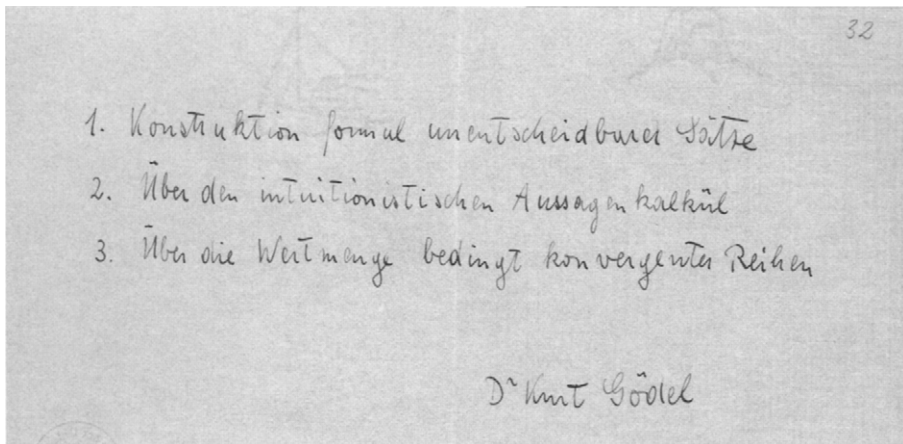 32
1. Konstruktion formal unentscheidbarer Sätze
2. Über den intuitionistischen Aussagenkalkül
3. Über die Wertmenge bedingt konvergenter Reihen
Dr Kurt Gödel